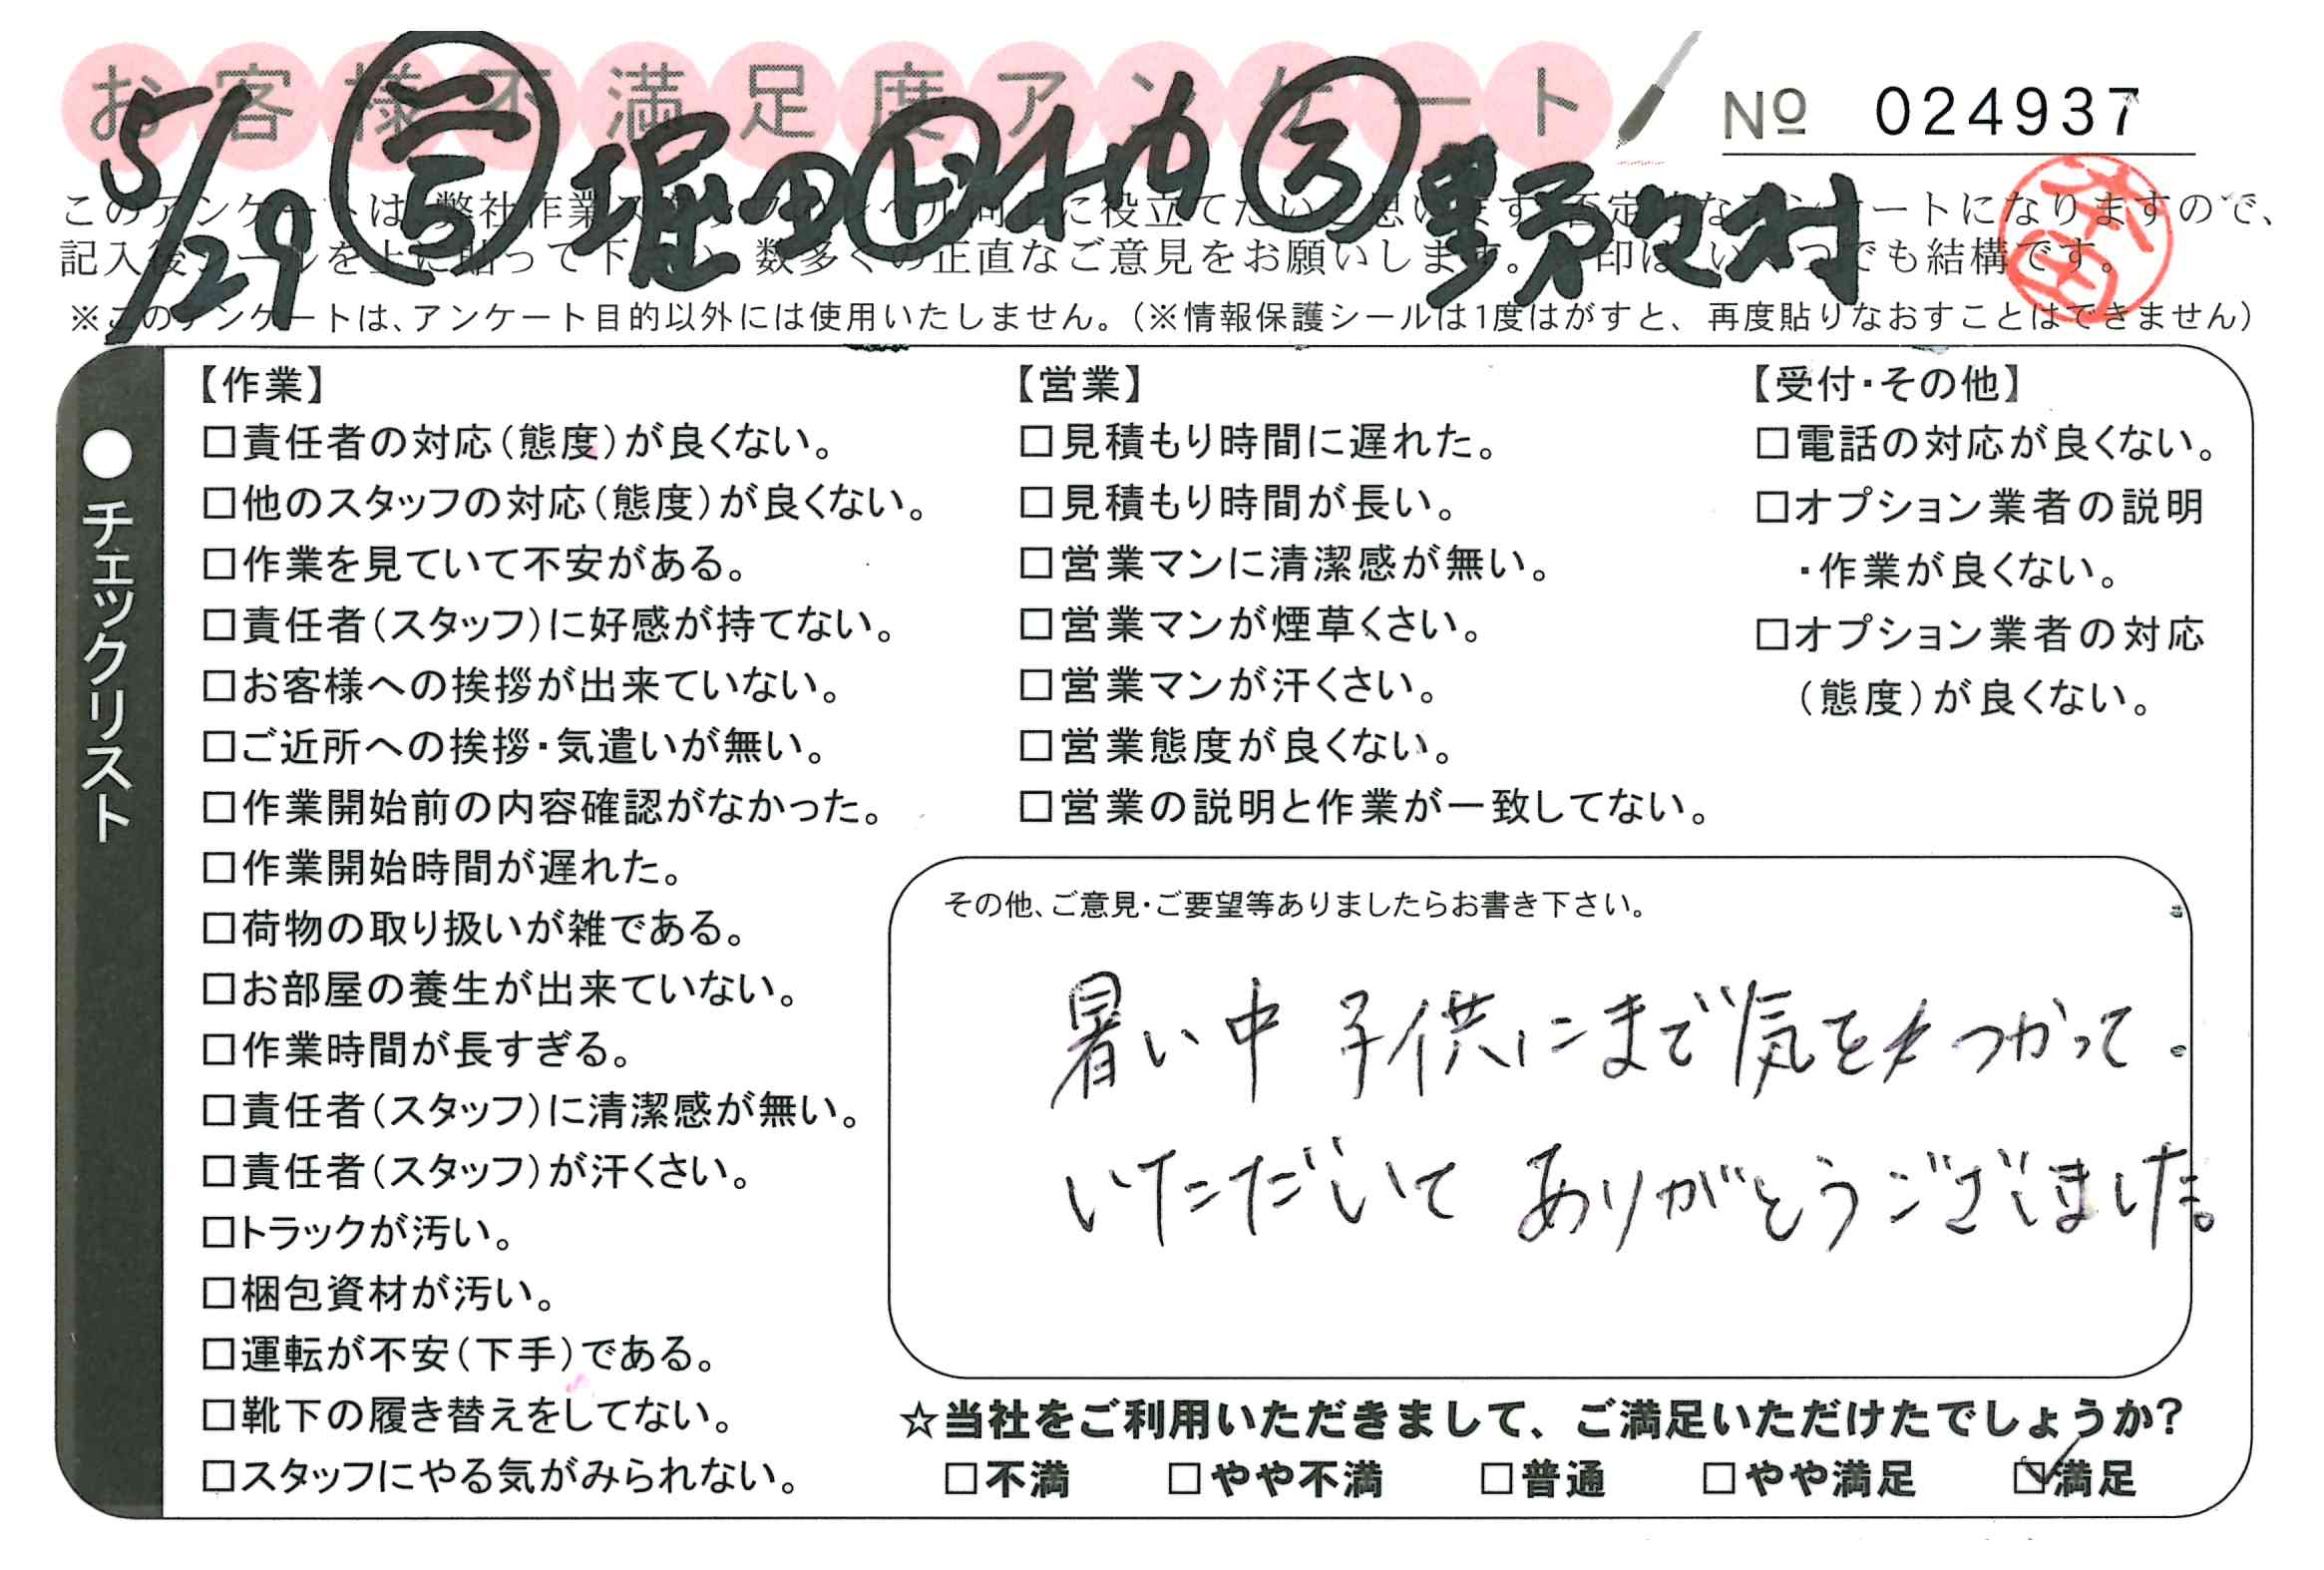 お客様不満足度アンケート
№ 024937
5/29 堀田 野々村
本田
記入後シールを上に貼って下さい。数多くの正直なご意見をお願いします。
※このアンケートは、アンケート目的以外には使用いたしません。（※情報保護シールは1度はがすと、再度貼りなおすことはできません）
●チェックリスト
【作業】
□責任者の対応（態度）が良くない。
□他のスタッフの対応（態度）が良くない。
□作業を見ていて不安がある。
□責任者（スタッフ）に好感が持てない。
□お客様への挨拶が出来ていない。
□ご近所への挨拶・気遣いが無い。
□作業開始前の内容確認がなかった。
□作業開始時間が遅れた。
□荷物の取り扱いが雑である。
□お部屋の養生が出来ていない。
□作業時間が長すぎる。
□責任者（スタッフ）に清潔感が無い。
□責任者（スタッフ）が汗くさい。
□トラックが汚い。
□梱包資材が汚い。
□運転が不安（下手）である。
□靴下の履き替えをしてない。
□スタッフにやる気がみられない。
【営業】
□見積もり時間に遅れた。
□見積もり時間が長い。
□営業マンに清潔感が無い。
□営業マンが煙草くさい。
□営業マンが汗くさい。
□営業態度が良くない。
□営業の説明と作業が一致してない。
【受付・その他】
□電話の対応が良くない。
□オプション業者の説明
・作業が良くない。
□オプション業者の対応
（態度）が良くない。
その他、ご意見・ご要望等ありましたらお書き下さい。
暑い中 子供にまで気をつかって
いただいて ありがとうございました。
☆当社をご利用いただきまして、ご満足いただけたでしょうか?
□不満 □やや不満 □普通 □やや満足 ☑満足